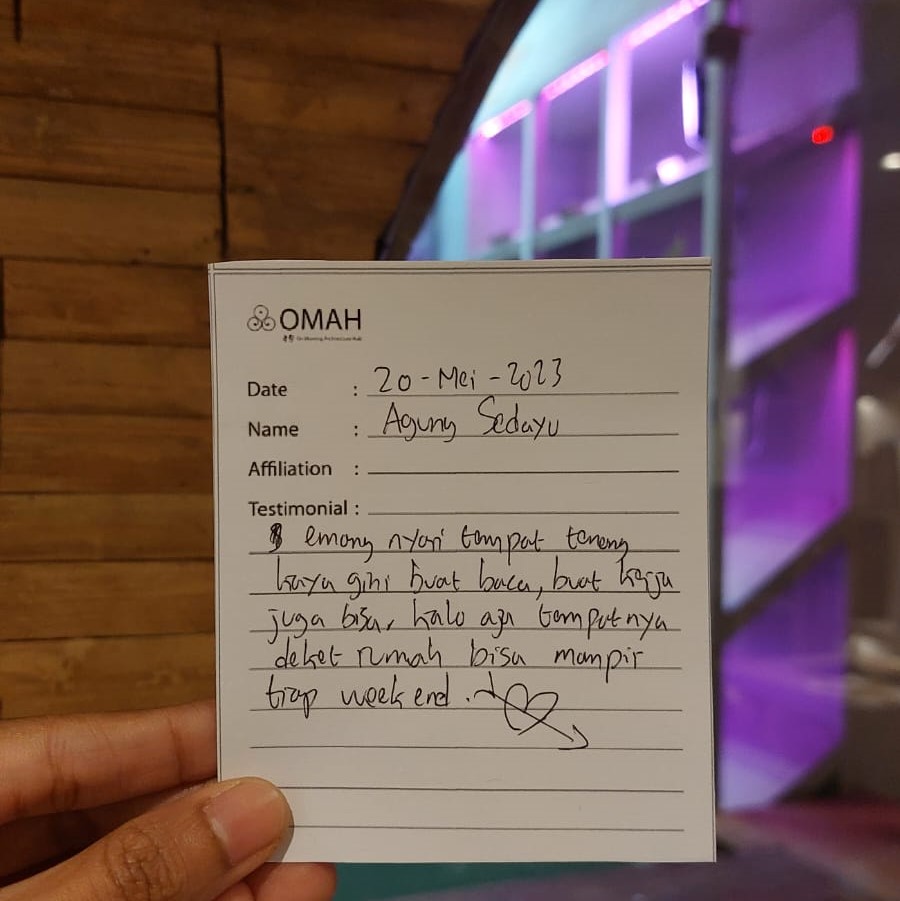 OMAH
Date : 20 - Mei - 2023
Name : Agung Sedayu
Affiliation :
Testimonial :
emang nyari tempat tenang
kaya gini buat baca, buat kerja
juga bisa, kalo aja tempatnya
deket rumah bisa mampir
tiap weekend.